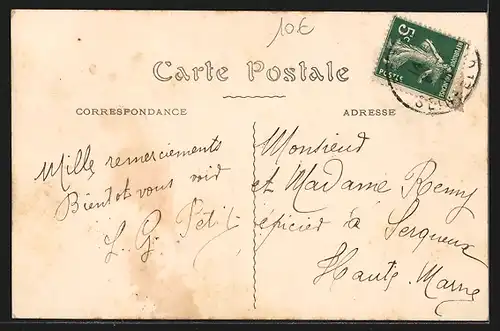 10€
Carte Postale
CORRESPONDANCE
ADRESSE
5c
POSTES
Mille remerciements
Bientot vous voir
L. G. Petit
Monsieur
et Madame Remy
épicier à Serqueux
Haute Marne